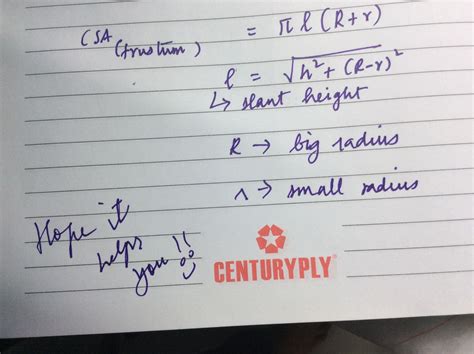 CSA (frustum) = π l (R+r)
l = √h² + (R-r)²
↳ slant height
R → big radius
r → small radius
Hope it
helps
you!!
CENTURYPLY®